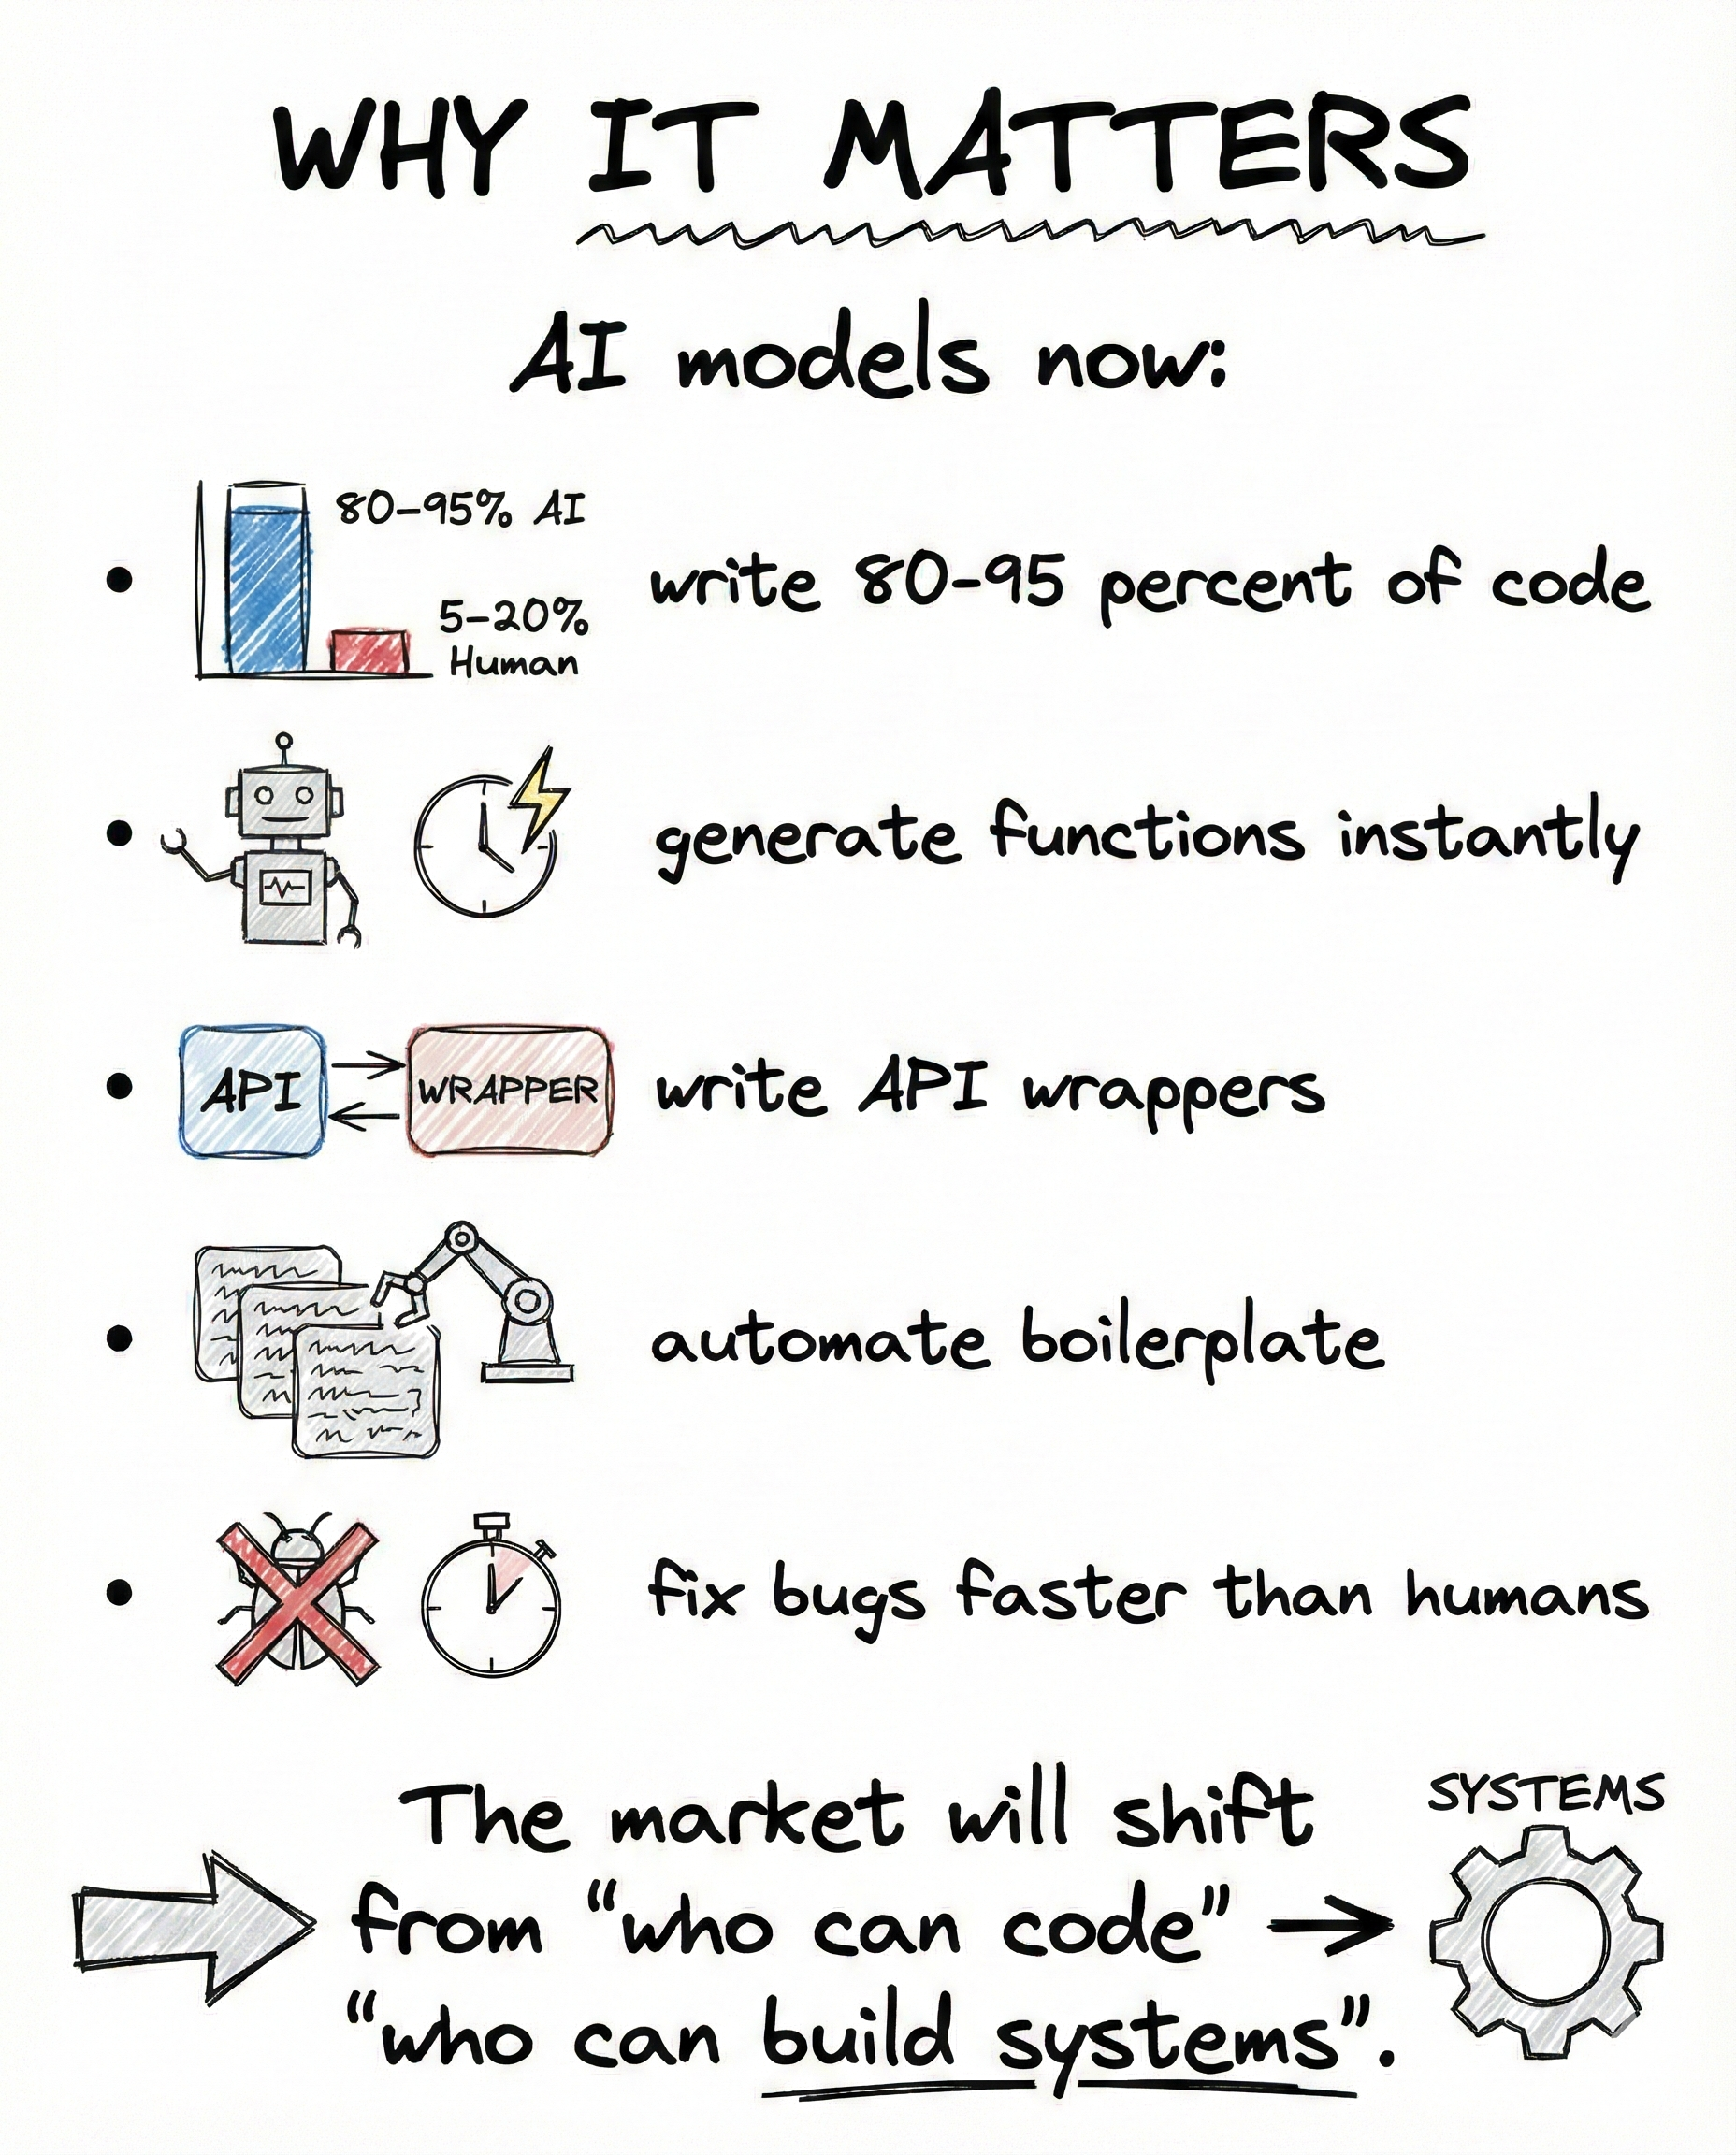 WHY IT MATTERS
AI models now:
80-95% AI
5-20%
Human
write 80-95 percent of code
generate functions instantly
API
WRAPPER
write API wrappers
automate boilerplate
fix bugs faster than humans
The market will shift
SYSTEMS
from “who can code” →
“who can build systems”.